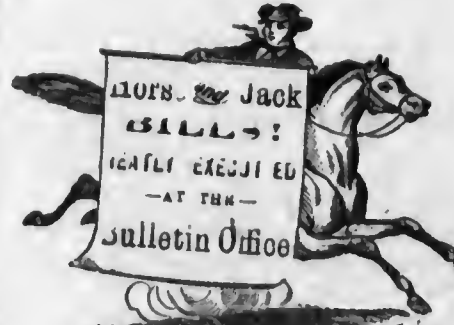 Horse and Jack
BILLS!
NEATLY EXECUTED
—AT THE—
Bulletin Office